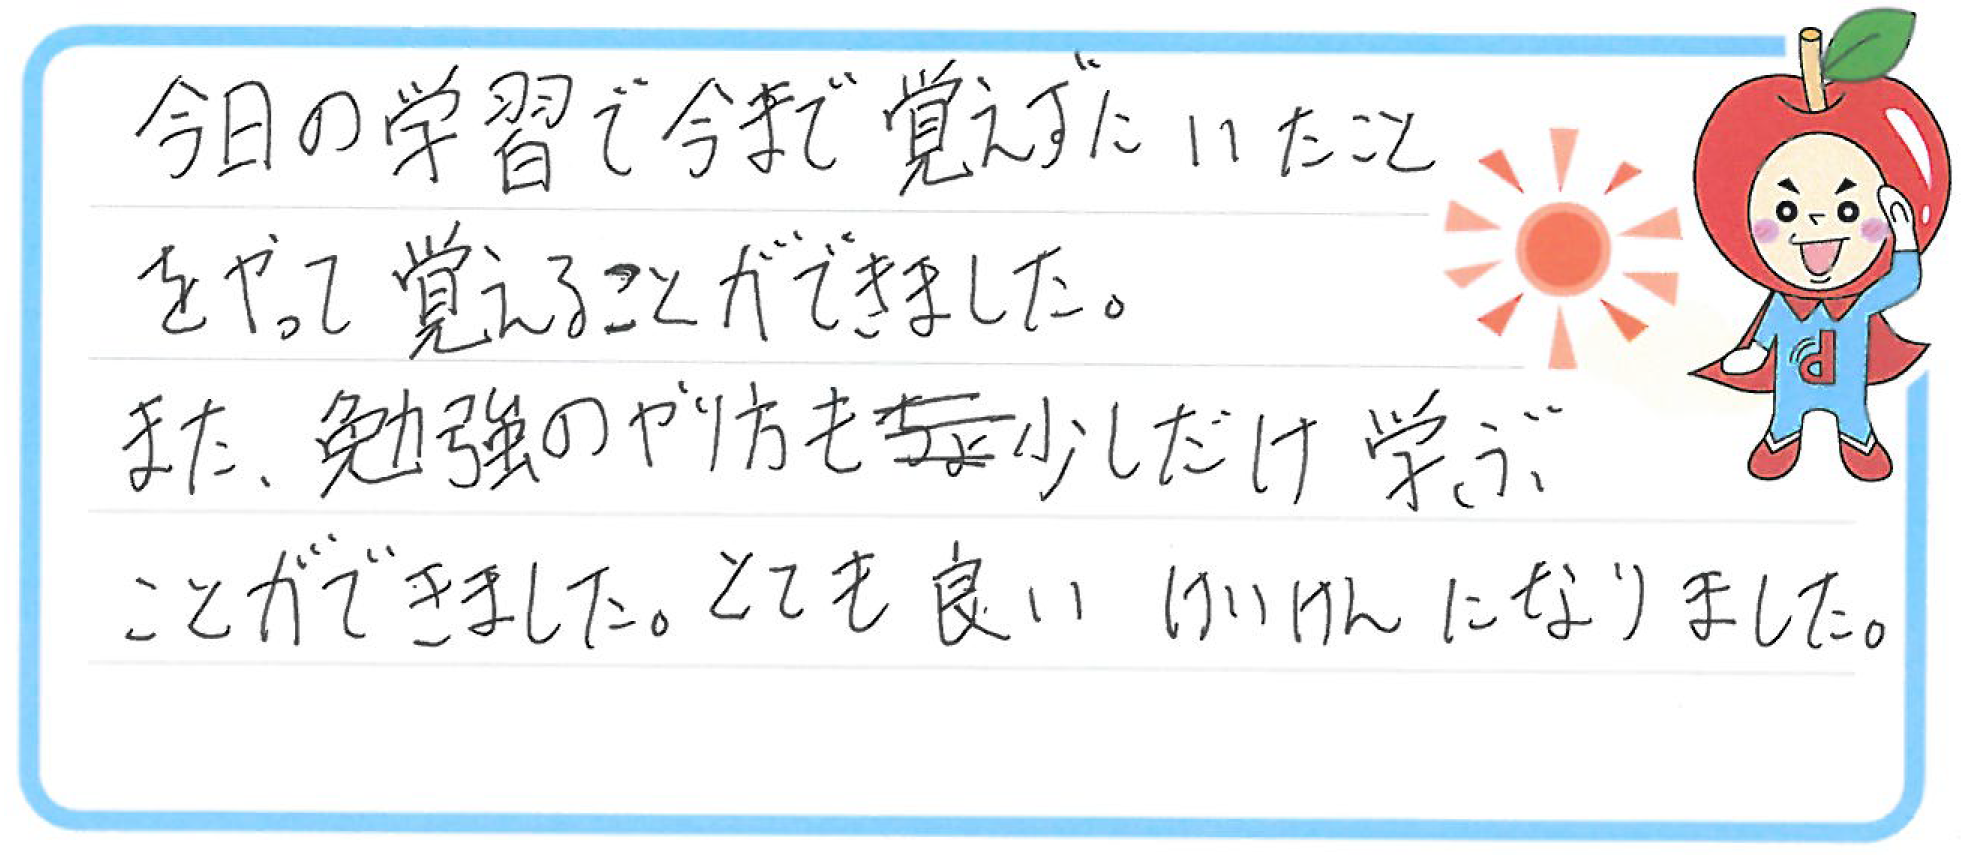 今日の学習で今まで覚えずにいたこと
をやって覚えることができました。
また、勉強のやり方も少しだけ学ぶ
ことができました。とても良いけいけんになりました。